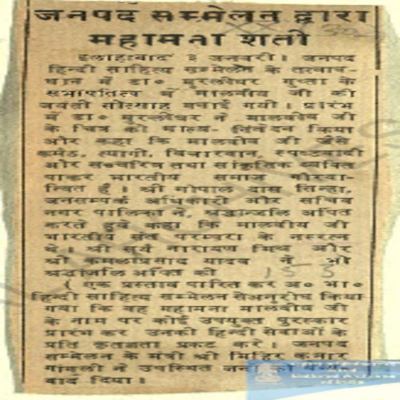 जनपद सम्मेलन द्वारा
महामना शती
इलाहाबाद ३ जनवरी। जनपद
हिन्दी साहित्य सम्मेलन के तत्वाव-
धान में डा० मुरलीधर गुप्ता के
सभापतित्व में मालवीय जी की
जयंती सोत्साह मनाई गयी। प्रारंभ
में डा० मुरलीधर ने मालवीय जी
के चित्र को माल्य-निवेदन किया
और कहा कि मालवीय जी जैसे
कर्मठ, त्यागी, विचारवान, स्पष्टवादी
और सच्चरित्र तथा सांस्कृतिक व्यक्ति
पाकर भारतीय समाज गौरवा-
न्वित है। श्री गोपाल दास सिन्हा,
जनसम्पर्क अधिकारी और सचिव
नगर पालिका ने, श्रद्धान्जलि अर्पित
करते हुये कहा कि मालवीय जी
भारतीय संत परम्परा के नररत्न
थे। श्री सूर्य नारायण मिश्र और
श्री कमलाप्रसाद यादव ने भी
श्रद्धांजलि अर्पित की
एक प्रस्ताव पारित कर अ० भा०
हिन्दी साहित्य सम्मेलन से अनुरोध किया
गया कि वह महामना मालवीय जी
के नाम पर कोई उपयुक्त पुरस्कार
प्रारम्भ कर उनकी हिन्दी सेवाओं के
प्रति कृतज्ञता प्रकट करे। जनपद
सम्मेलन के मंत्री श्री मिहिर कुमार
गांगुली ने उपस्थित जनों को धन्यवाद
वाद दिया।